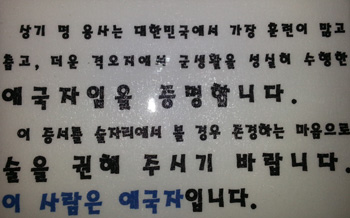 상기 명 용사는 대한민국에서 가장 훈련이 많고
춥고, 더운 격오지에서 군생활을 성실히 수행한
애국자임을 증명합니다.
이 증서를 술자리에서 볼 경우 존경하는 마음으로
술을 권해 주시기 바랍니다.
이 사람은 애국자입니다.